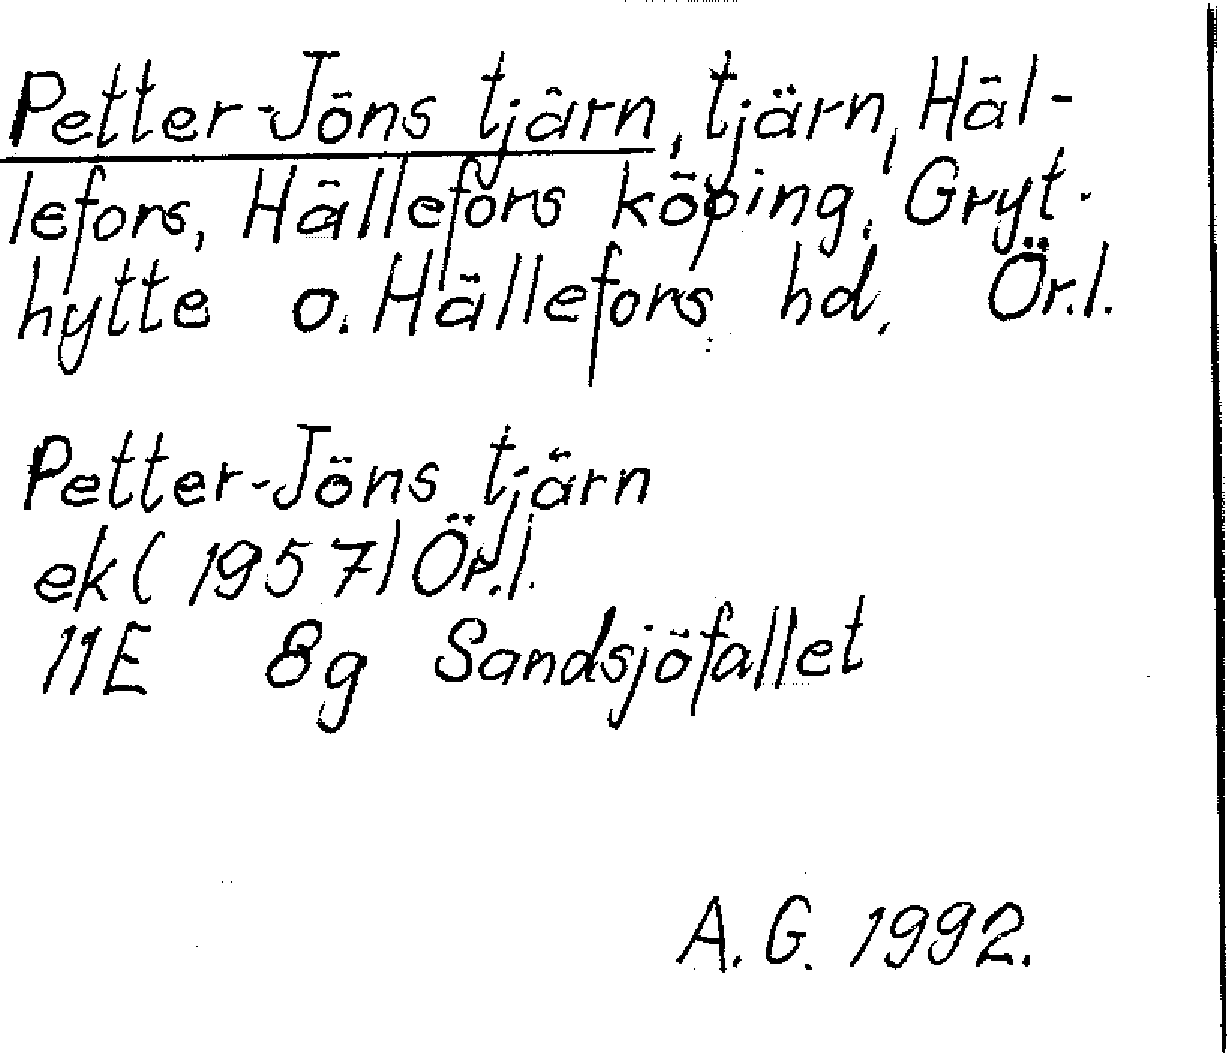 Petter-Jöns tjärn, tjärn, Häl-
lefors, Hällefors köping, Gryt-
hytte o. Hällefors hd, Ör.l.
Petter-Jöns tjärn
ek (1957) Ör.l.
11E 8g Sandsjöfallet
A.G. 1992.